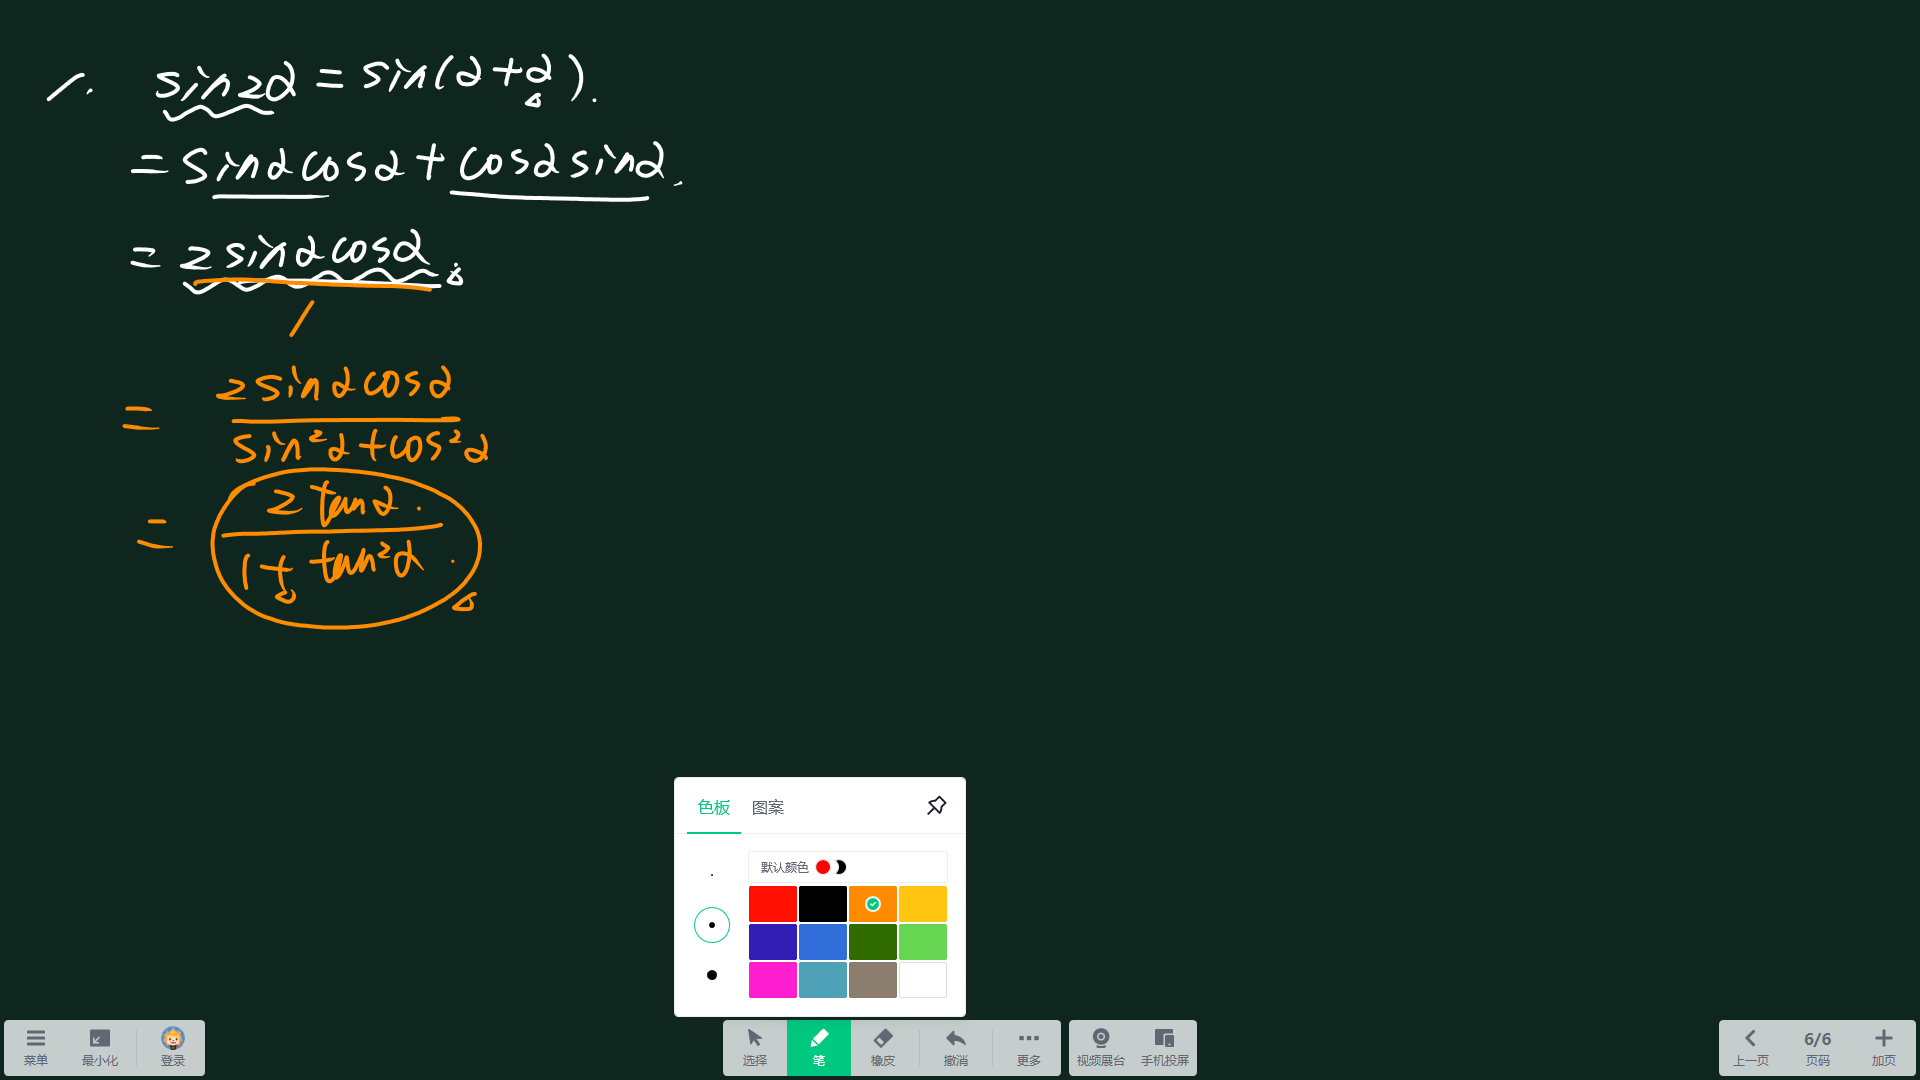 1. sin2α = sin(α+α).
= sinαcosα + cosαsinα.
= 2sinαcosα.
1
= 2sinαcosα / sin²α+cos²α
= 2tanα / 1+tan²α
色板 图案
默认颜色
菜单 最小化 登录 选择 笔 橡皮 撤消 更多 视频展台 手机投屏 上一页 6/6 页码 加页